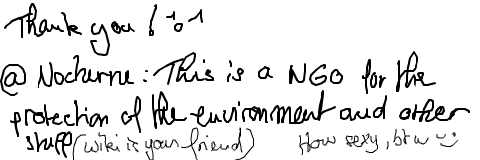 Thank you ! ^o^
@ Nocturne : This is a NGO for the
protection of the environment and other
stuff (wiki is your friend) How sexy, btw :)